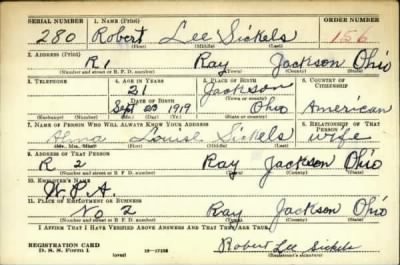 SERIAL NUMBER 1. NAME (Print) ORDER NUMBER
280 Robert Lee Sickels 156
(First) (Middle) (Last)
2. ADDRESS (Print)
R1 Ray Jackson Ohio
(Number and street or R. F. D. number) (Town) (County) (State)
3. TELEPHONE 4. AGE IN YEARS 5. PLACE OF BIRTH 6. COUNTRY OF CITIZENSHIP
21 Jackson
DATE OF BIRTH (Town or county)
Sept 23 1919 Ohio American
(Exchange) (Number) (Mo.) (Day) (Yr.) (State or country)
7. NAME OF PERSON WHO WILL ALWAYS KNOW YOUR ADDRESS 8. RELATIONSHIP OF THAT PERSON
Louise Sickels wife
(Mr., Mrs., Miss) (First) (Middle) (Last)
9. ADDRESS OF THAT PERSON
R 2 Ray Jackson Ohio
(Number and street or R. F. D. number) (Town) (County) (State)
10. EMPLOYER'S NAME
W.P.A.
11. PLACE OF EMPLOYMENT OR BUSINESS
No 2 Ray Jackson Ohio
(Number and street or R. F. D. number) (Town) (County) (State)
I AFFIRM THAT I HAVE VERIFIED ABOVE ANSWERS AND THAT THEY ARE TRUE.
REGISTRATION CARD Robert Lee Sickels
D. S. S. Form 1 (over) (Registrant's signature)